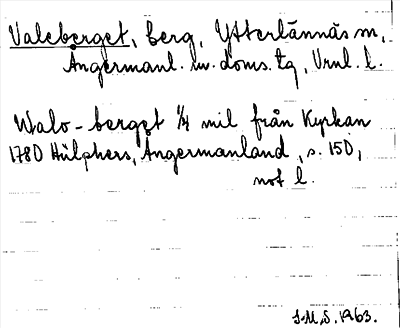 Valeberget, berg, Ytterlännäs sn,
Ångermanl. s. doms. tg, Vrnl. l.
Walo-berget 1/4 mil från Kyrkan
1780 Hülphers, Ångermanland, s. 150,
not l.
S.M.S. 1963.